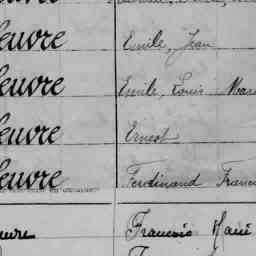 euvre Emile, Jean
euvre Emile, Louis Mar
euvre Ernest
euvre Ferdinand Franc
euvre Francois